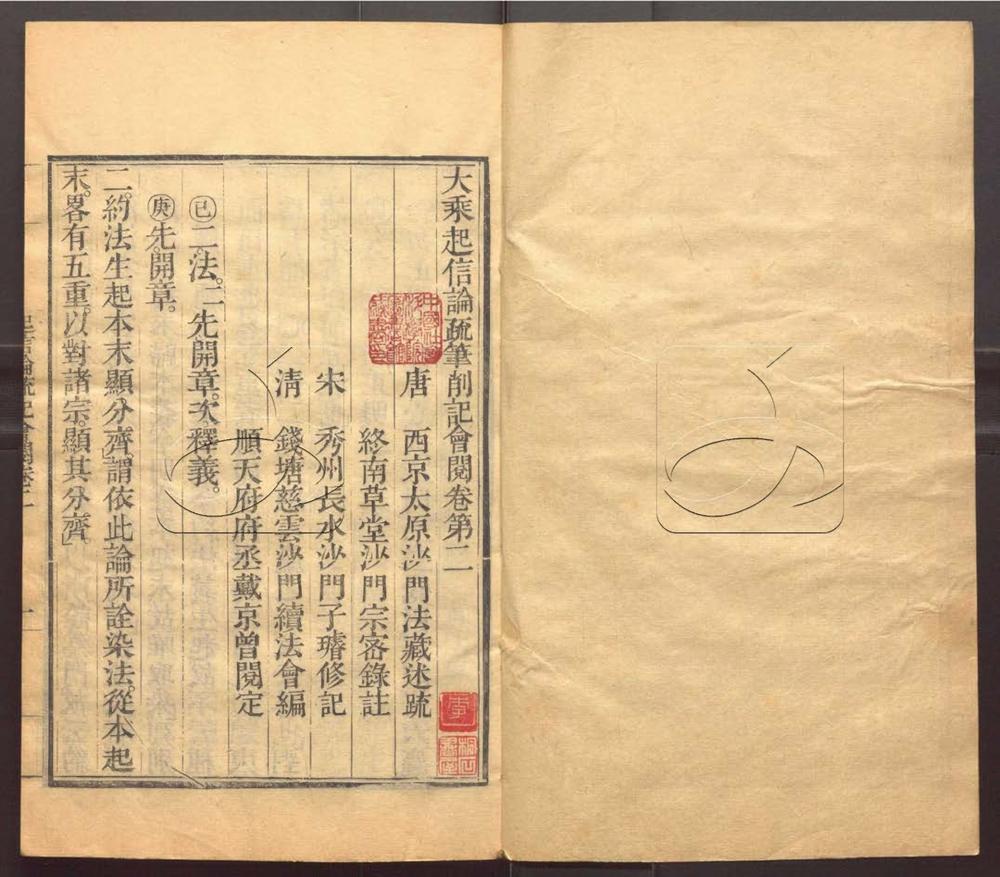 大乘起信論疏筆削記會閱卷第二
唐　西京太原沙門法藏述疏
終南草堂沙門宗密錄註
宋　秀州長水沙門子璿修記
清　錢塘慈雲沙門續法會編
順天府府丞戴京曾閱定
㊁二法二先開章次釋義
庚先開章
二約法生起本末顯分齊謂依此論所詮染法從本起
末畧有五重以對諸宗顯其分齊
起信論疏記會閱卷二
一